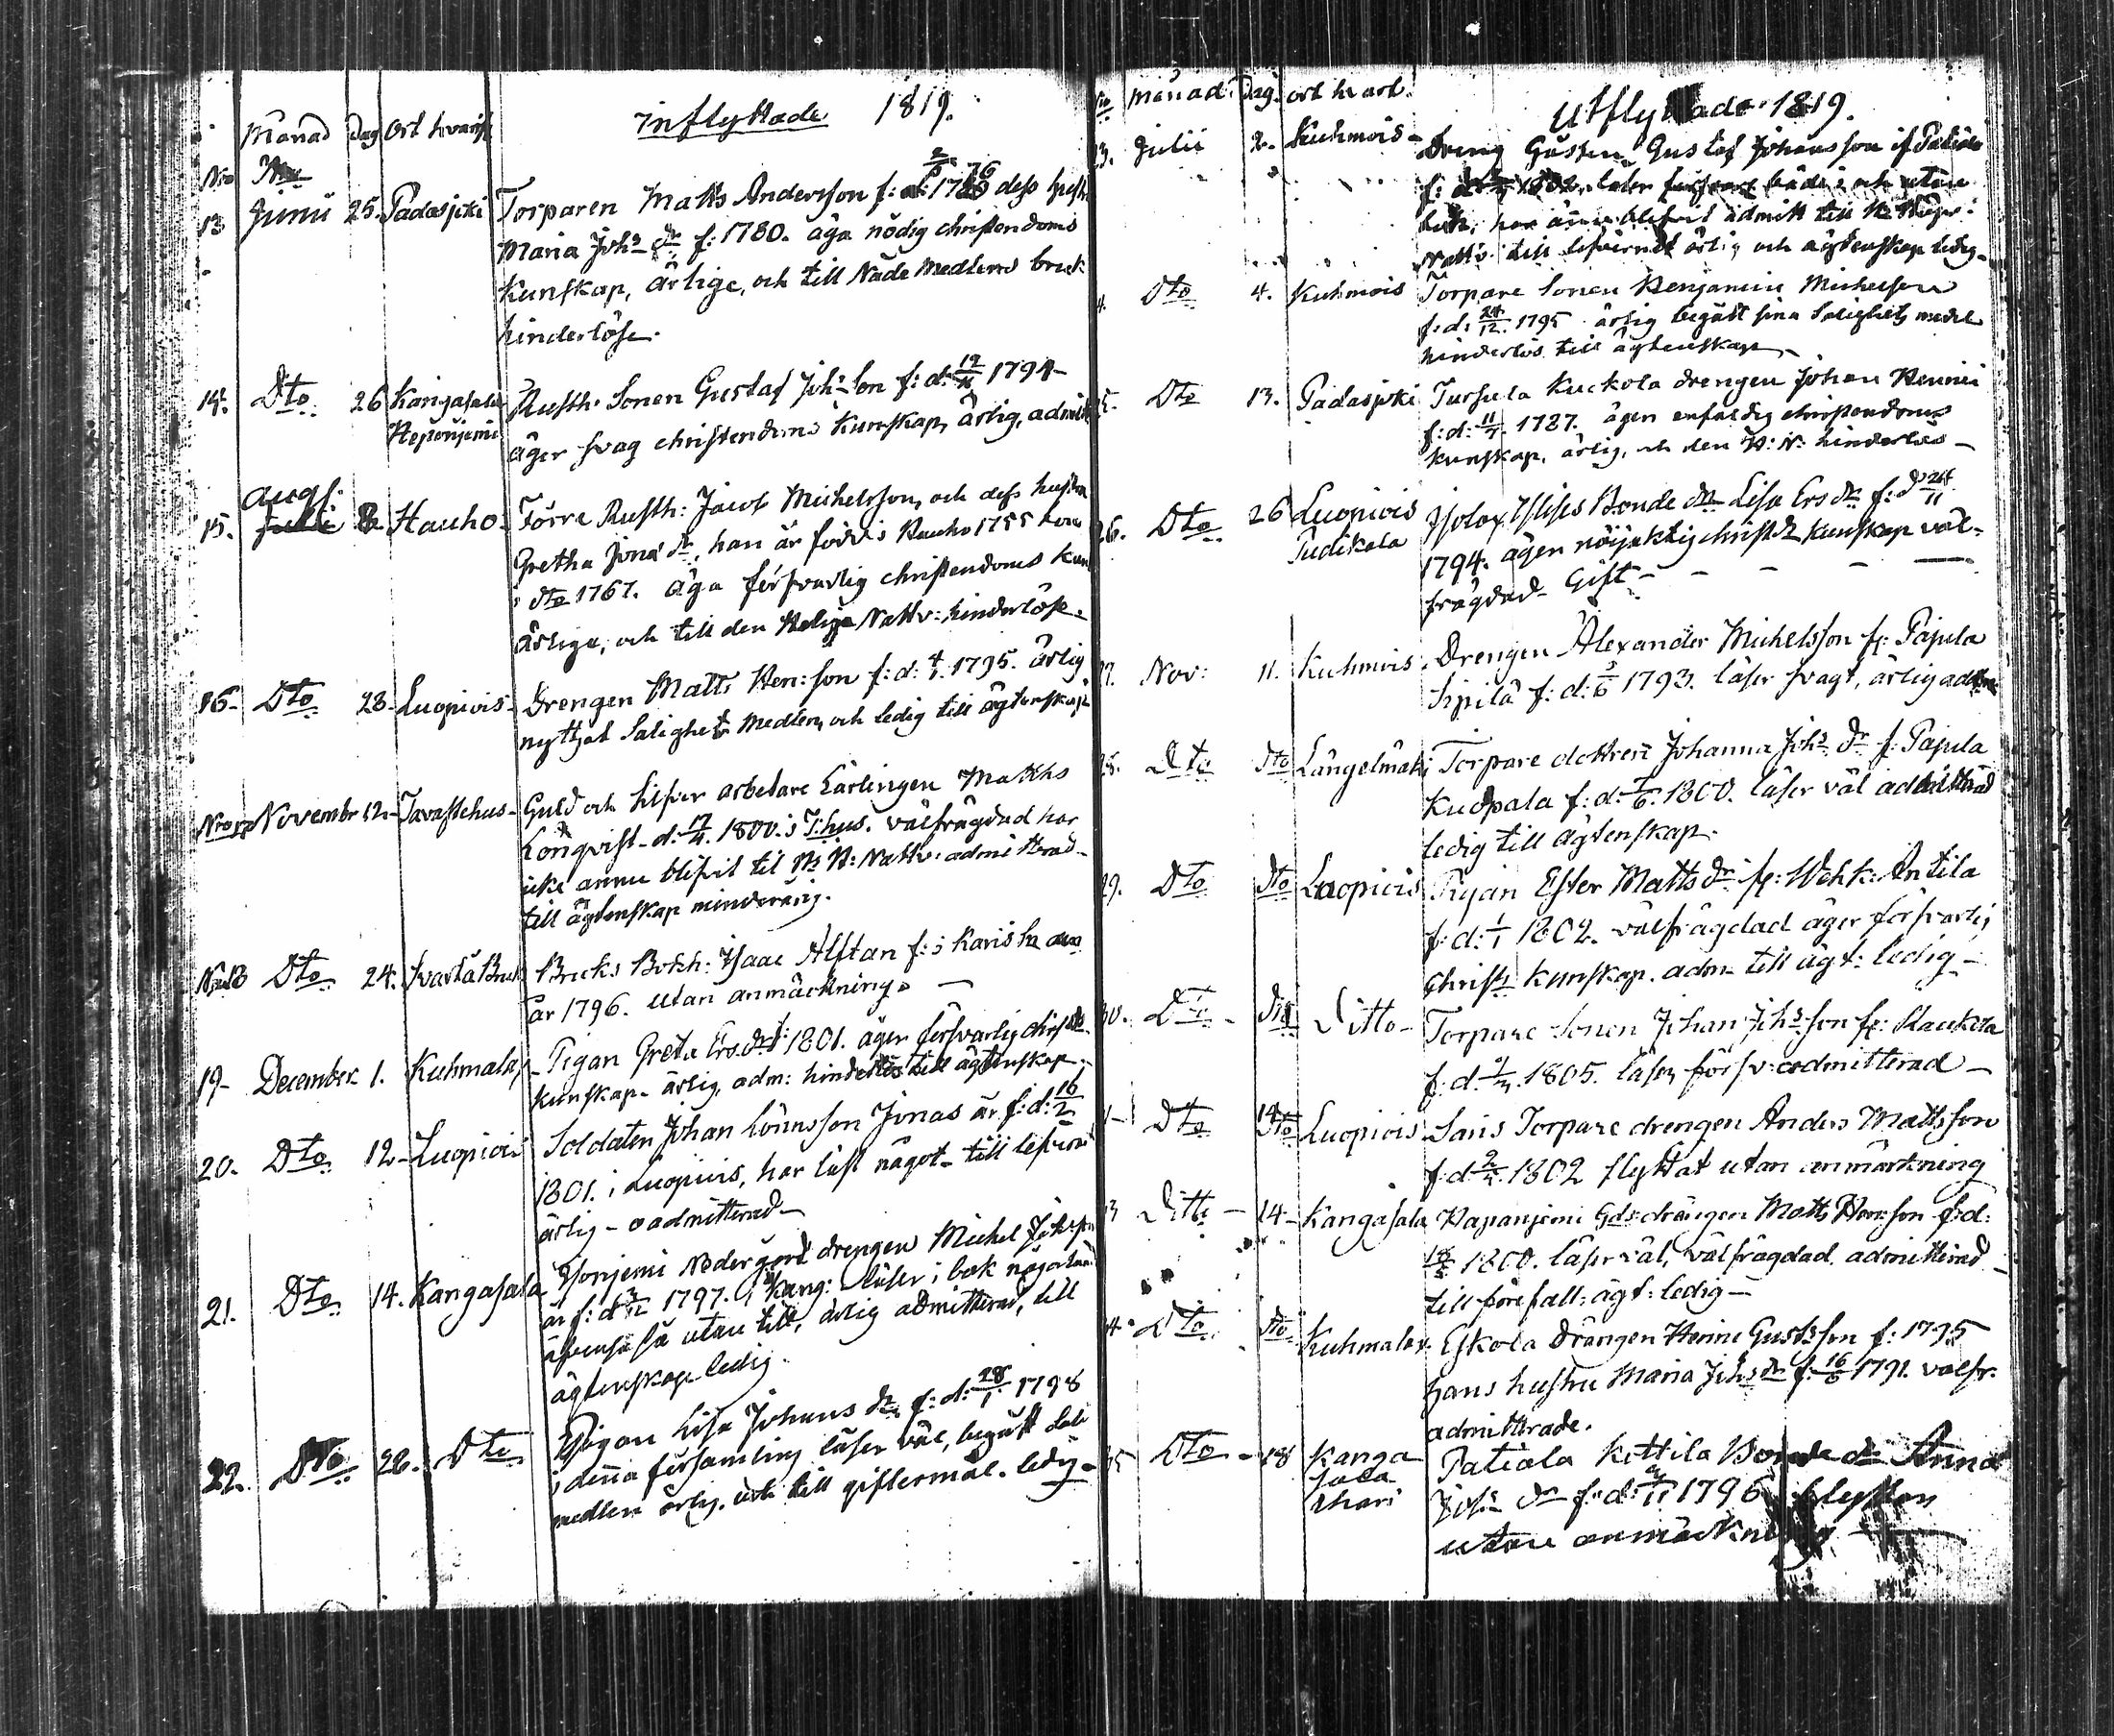 inflyttade 1819.
Månad Dag Ort hvarif
No
13 Junii 25. Padasjoki Torparen Matts Andersson f: 1776 dess hust
Maria Johs dr f: 1780. äga nödig christendoms
kunskap, ärlige, och till Nåde Medlens bruk
hinderlöse.
14. Dto 26 Kangasala Rusth. Sonen Gustaf Johs Son f: d: 1794
äger svag christendoms kunskap, ärlig, admitt
15. Augs: Hauho Förre Rusth: Jacob Michelsson, och dess hustru
Gretha Jonæ dr, han är född i Hauho 1755 hon
i dto 1767. äga försvarlig christendoms kun
ärlige, och till den Helige Nattv: hinderlöse.
16 Dto 28 Luopiois Drengen Matts Hen:son f: d: 1795. ärlig
nyttjat Salighets Medlen, och ledig till ägtenskap
Novembr 12 Tavastehus Guld och Silfver arbetare Lärlingen Matths
Lönqvist d: 17/4. 1800. i T:hus. välfrägdad har
icke ännu blifvit til H: Nattv: admitterad
till ägtenskap minderårig.
No 18 Dto 24. Bruks Bokh: Isaac Alftan f: i Karis
år 1796. utan anmärkning.
19 December 1. Kuhmalax Pigan Greta Ers dr f: 1801. äger försvarlig christd
kunskap. ärlig, adm: hinderlös till ägtenskap.
20. Dto 12 Luopiois Soldaten Johan Lönnsson Jonas är f: d: 16/2
1801. i Luopiois, har läst något. till lefvern
ärlig - oadmitterad
21. Dto 14. Kangasala drengen Michel Johsson
är f: d 1797. i Kang: läser i bok någorlund
äfvenså utan till, ärlig admitterad, till
ägtenskap ledig.
22. Dto 26. Dto Pigan Lisa Johans dr f: d: 28/1 1798
i denna församling läser väl, begått Sali
medlen ärlig. och till giftermål. ledig
utflyttade 1819.
No Månad Dag. ort hvart.
Julii 2. Kuhmois Dreng Gossen Gustaf Johansson
f: 1802. läser försvarl både i och utan
bok, har ännu blifvit admitt till
Nattv: till lefvernet ärlig och ägtenskap ledig.
Dto 4. Kuhmois Torpare Sonen Benjamin Michelsson
f: d: 24/12. 1795 ärlig begått sina Salighets medel
hinderlös till ägtenskap
Dto 13. Padasjoki Kuckola drengen Johan Henrici
f: d: 1787. äger enfaldig christendoms
kunskap, ärlig, och den H: N: hinderlös
26. Dto 26 Luopiois Bonde dr Lisa Ers dr f: d 24/11
1794. äger christd kunskap väl-
frägdad Gift
Nov: 11. Kuhmois Drengen Alexander Michelsson fr: Pajula
Sipilä f: d: 1793. läser svagt, ärlig
Dto Dto Längelmäki Torpare dottren Johanna Johs dr f: Pajula
f: d: 1800. läser väl admitterad
ledig till ägtenskap.
29. Dto Dto Luopiois Pigan Ester Matts dr fr: Wehk: Antila
f: d: 1/1 1802. välfrägdad äger försvarlig
Christ: kunskap. adm till ägt: ledig
30. Dto Dto Ditto Torpare Sonen Johan Johs son fr:
f: d. 1805. läser försv: admitterad
Dto Luopiois Torpare drengen Anders Mattsson
f: d 1802 flyttat utan anmärkning
Ditto 14 Kangasala drängen Matts Hen:son f: d:
1800. läser väl, välfrägdad. admitterad
till före fall: ägt: ledig
Dto Dto Kuhmalax Eskola Drängen Henric Gusts son f: 1795
hans hustru Maria Johs dr f: 1791. välfr.
admitterade.
Dto 18 Kanga
sala Patiala Kottila Bonde dr Anna
Johs dr f: d: 1796 flyttar
utan anmärkning